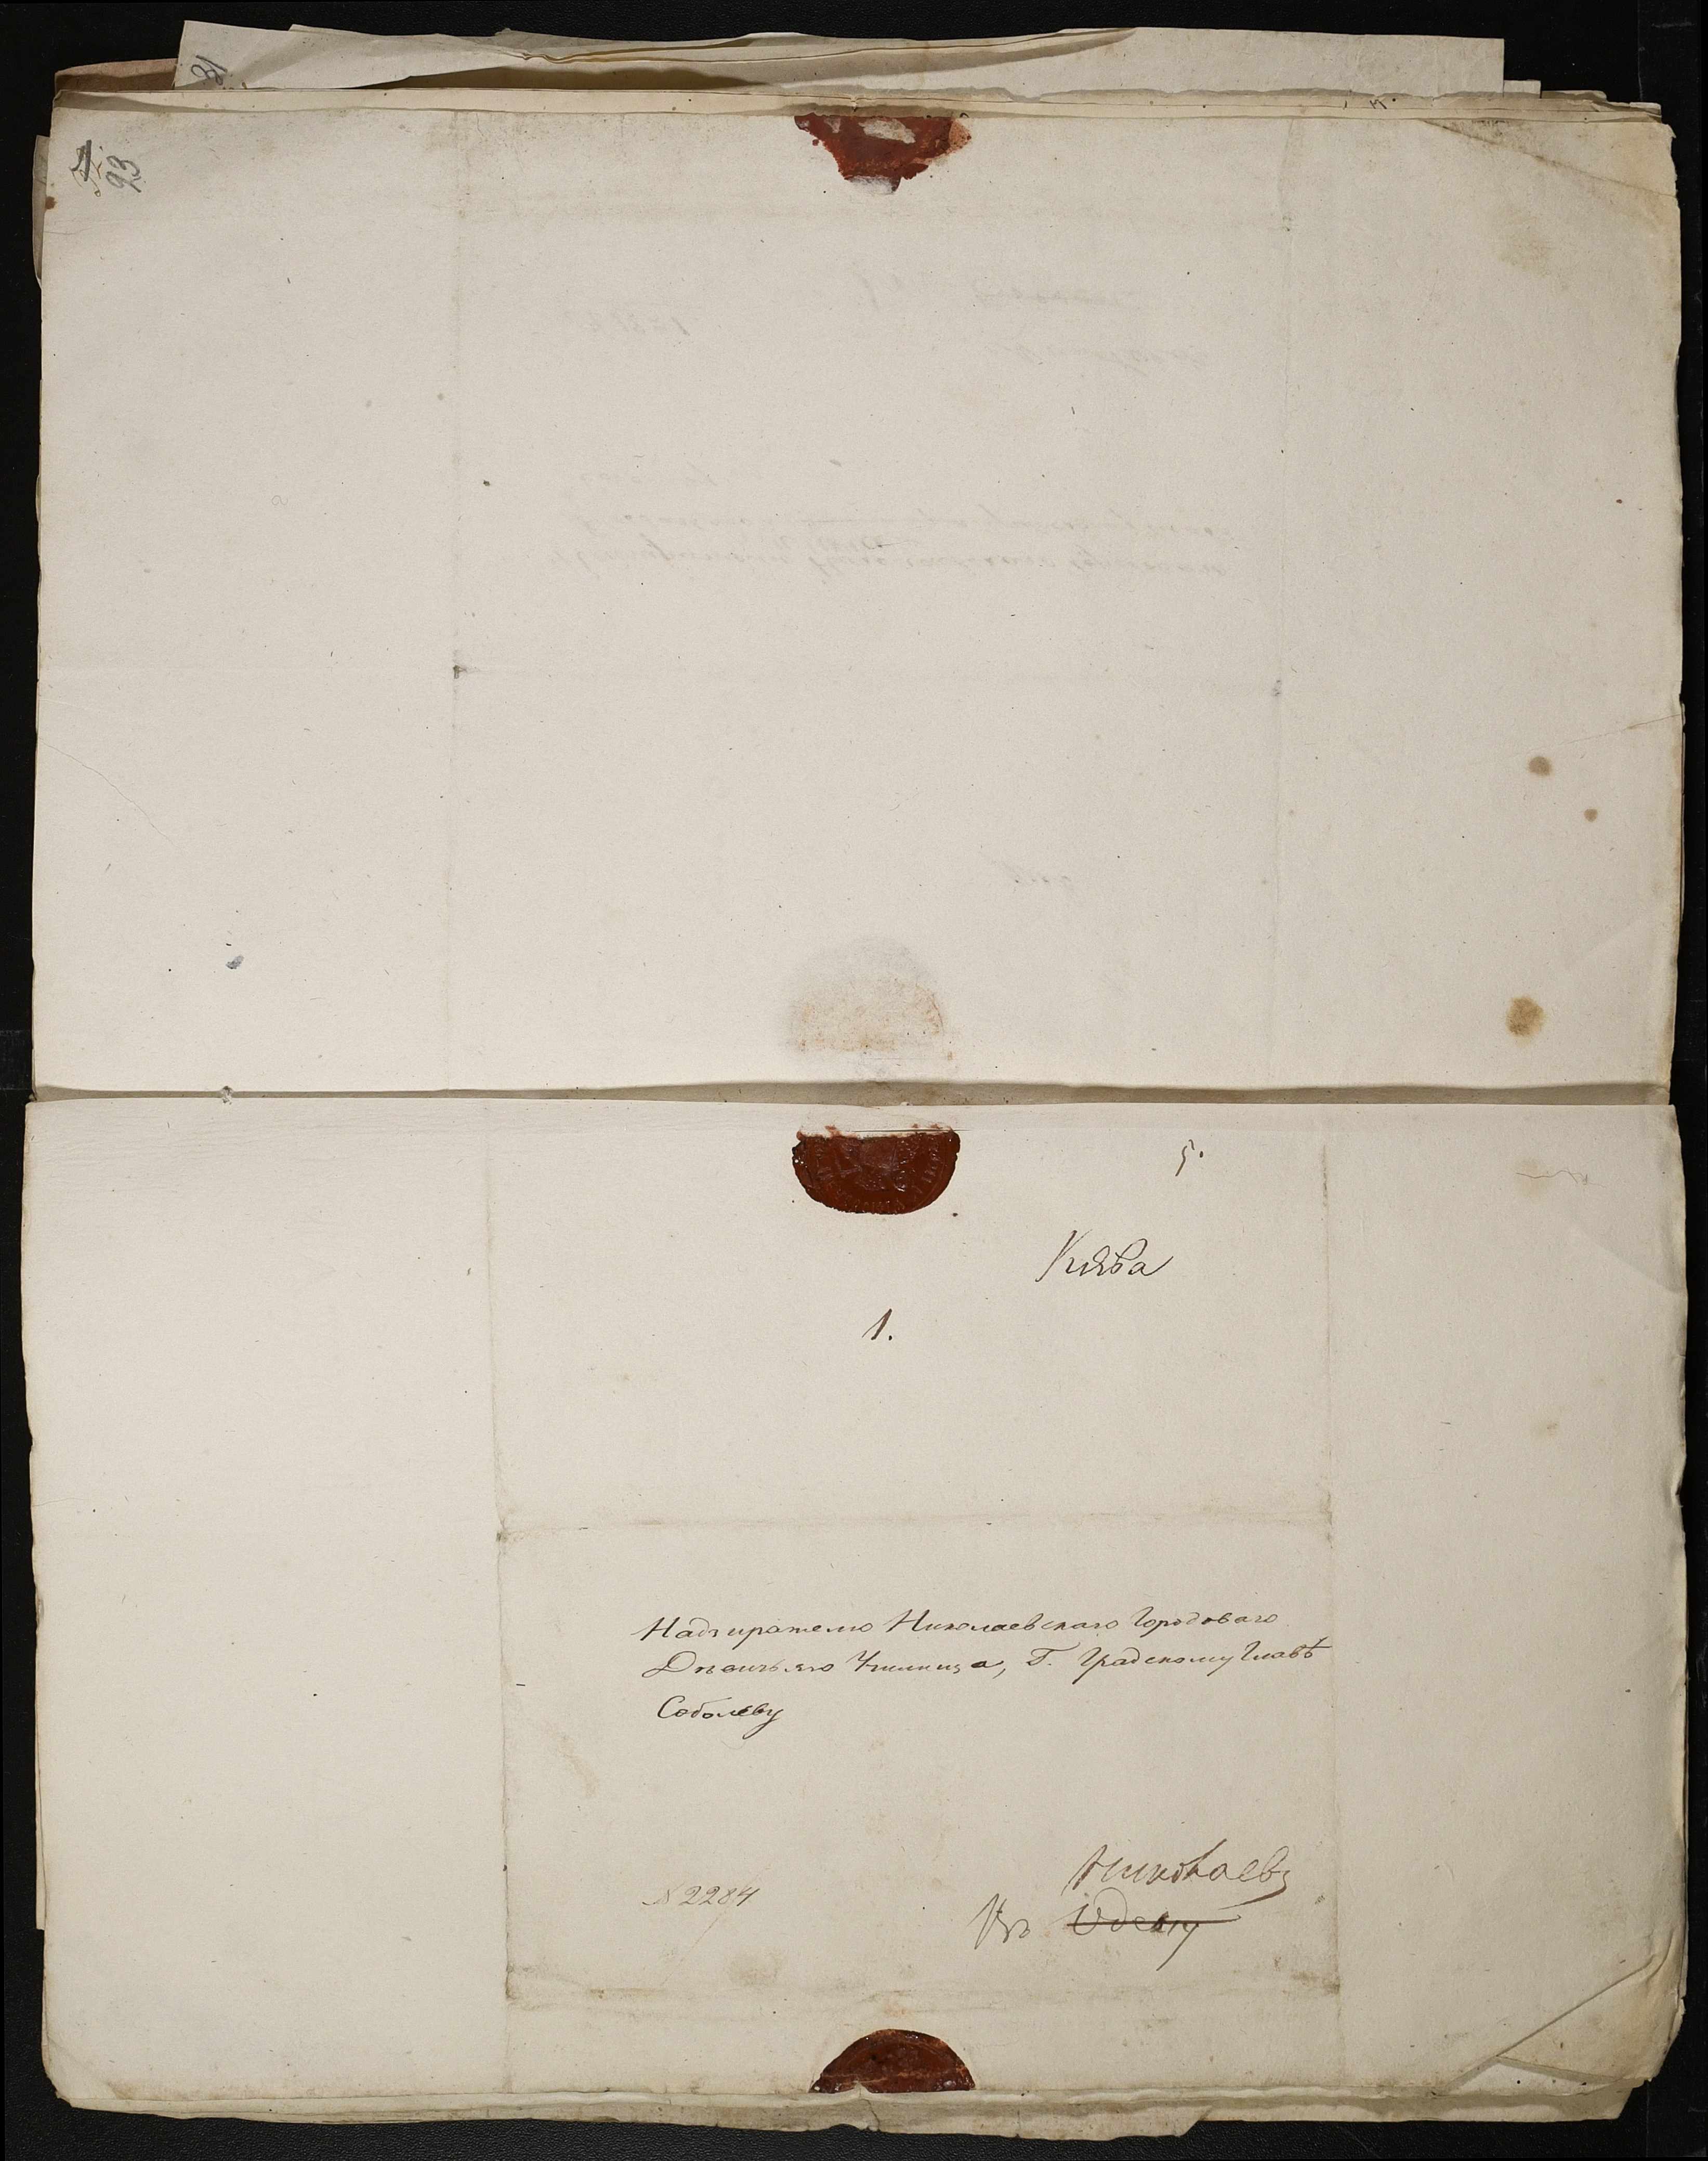 93
5.
1.
Надзирателю Николаевскаго Городоваго
Дѣвичьяго Училища, Г. Градскому Главѣ
Соболеву
Николаевъ
№ 2284
Въ Одессу